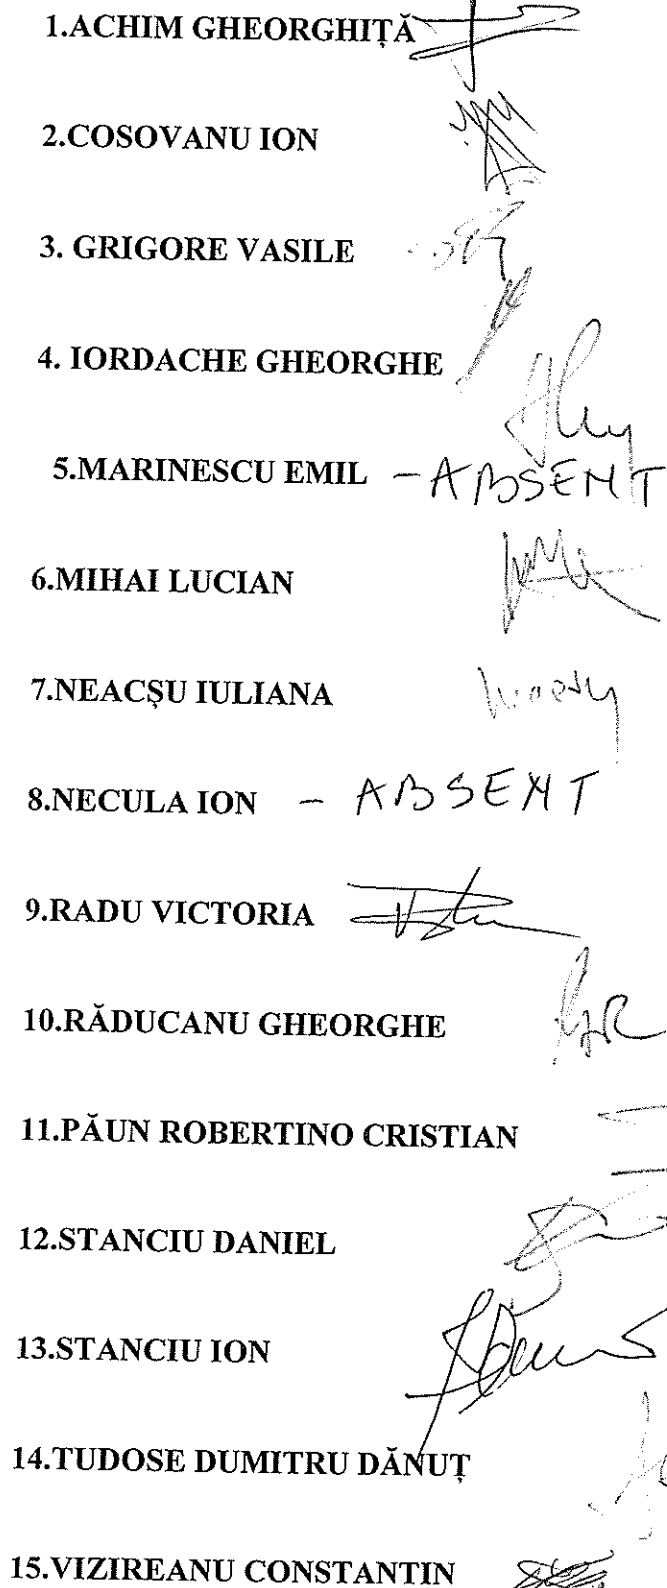 1.ACHIM GHEORGHIȚĂ
2.COSOVANU ION
3. GRIGORE VASILE
4. IORDACHE GHEORGHE
5.MARINESCU EMIL - ABSENT
6.MIHAI LUCIAN
7.NEACȘU IULIANA
8.NECULA ION - ABSENT
9.RADU VICTORIA
10.RĂDUCANU GHEORGHE
11.PĂUN ROBERTINO CRISTIAN
12.STANCIU DANIEL
13.STANCIU ION
14.TUDOSE DUMITRU DĂNUȚ
15.VIZIREANU CONSTANTIN